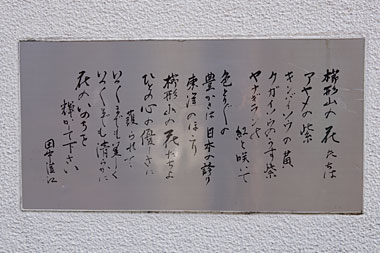 櫛形山の花たちは
アヤメの紫
キンバイソウの黄
クガイソウのうす紫
ヤナギランは
紅と咲いて
色とりどりの
豊かさは日本の誇り
東洋のほこり
櫛形山の花たちよ
ひとの心の優しさに
護られて
いつまでも美しく
いつまでも清らかに
花のいのちを
輝かせ下さい
田中澄江